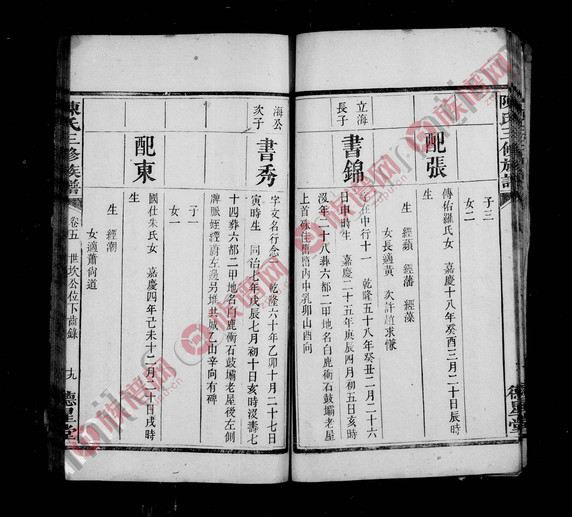 陳氏三修族譜
德星堂
子三
女二
配張
傳佑羅氏女 嘉慶十八年癸酉三月二十日辰時
生 經蘋 經藩 經藻
女長適黃 次許
立海
長子
書錦
在中行十一 乾隆五十八年癸丑二月二十六
日申時生 嘉慶二十五年庚辰四月初五日亥時
沒年二十八葬六都二甲地名白鹿衝石鼓壩老屋
上首 內中乳卯山酉向
海公
次子
書秀
字文名行念 乾隆六十年乙卯十月二十七日
寅時生 同治七年戊辰七月初十日亥時沒壽七
十四葬六都二甲地名白鹿衝石鼓壩老屋後左側
左邊另堆 乙山辛向有碑
子一
女一
配東
國仕朱氏女 嘉慶四年己未十二月二十日戌時
生 經潮
女適蕭尚道
陳氏三修族譜
卷五 世坎公位下齒錄 十九
德星堂
族譜网